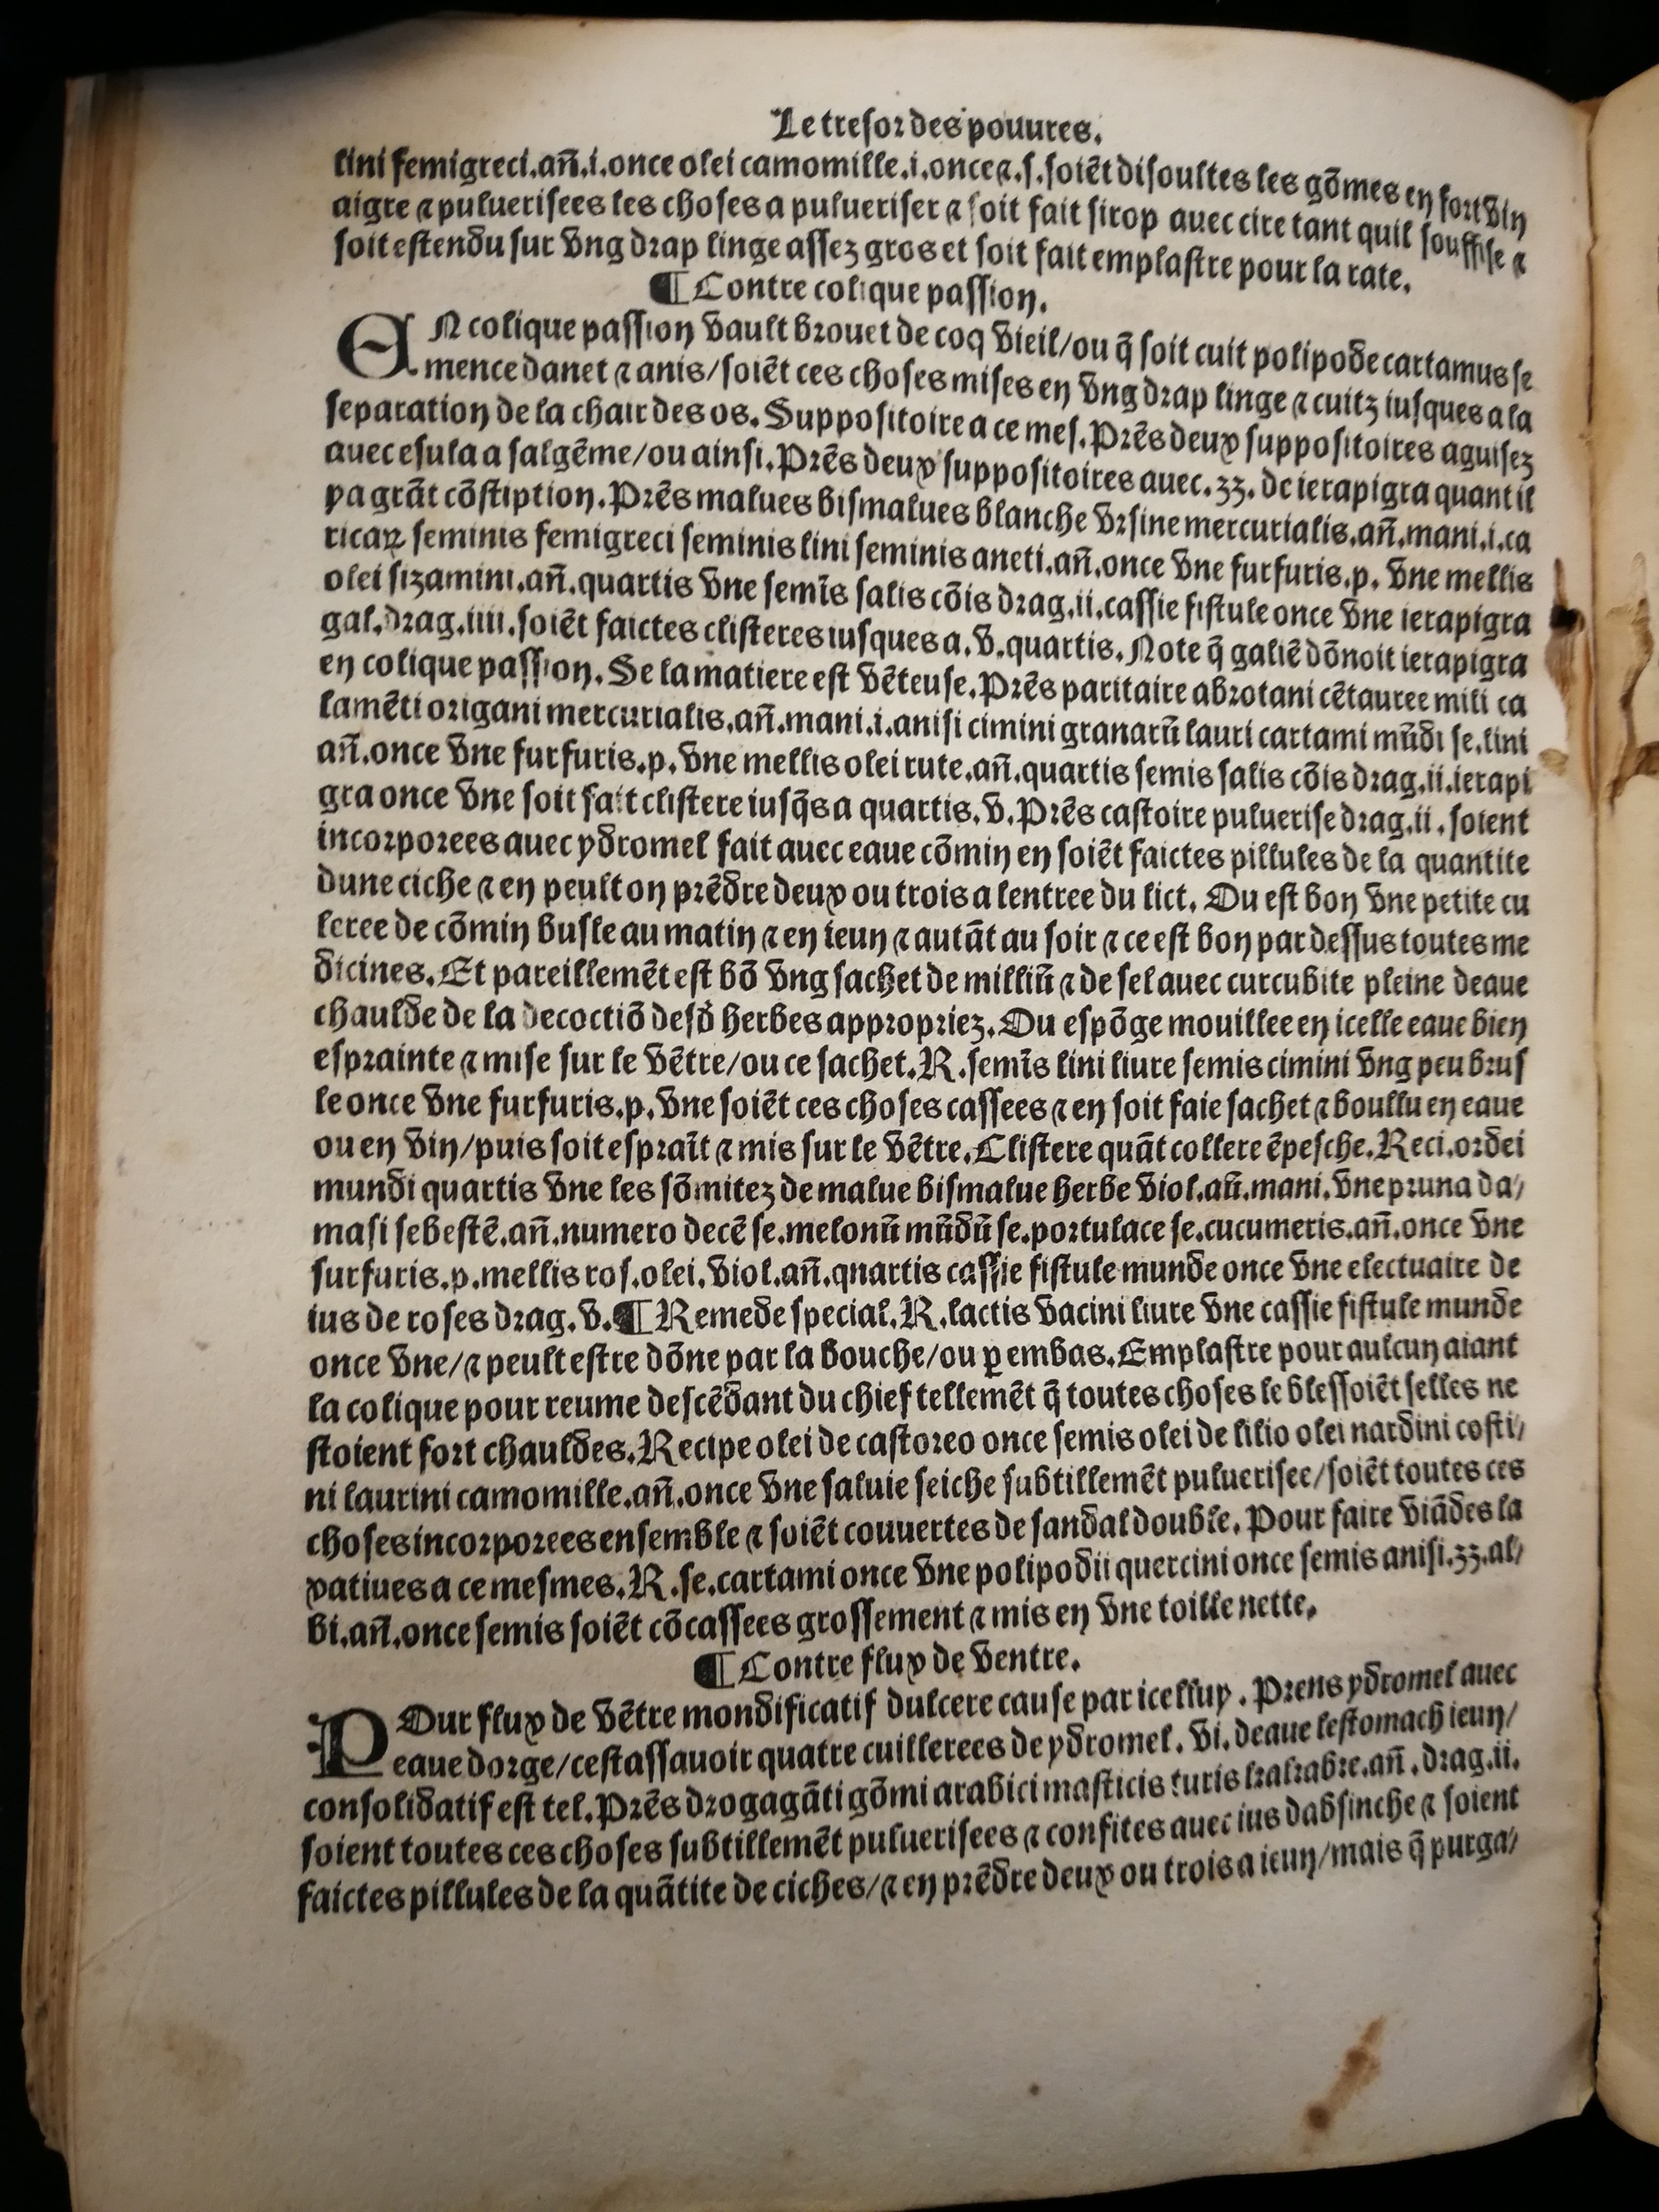 Le tresor des pouures.
lini femigreci.añ.i.once olei camomille.i.once ⁊.s.soiẽt disoultes les gõmes en fort vin
aigre ⁊ puluerisees les choses a pulueriser ⁊ soit fait sirop auec cire tant quil souffise ⁊
soit estendu sur vng drap linge assez gros et soit fait emplastre pour la rate.
¶ Contre colique passion.
EN colique passion vault brouet de coq vieil/ou q̃ soit cuit polipode cartamus se
mence danet ⁊ anis/soiẽt ces choses mises en vng drap linge ⁊ cuitz iusques a la
separation de la chair des os. Suppositoire a ce mes. Prẽs deux suppositoires aguisez
auec esula a salgẽme/ou ainsi. Prẽs deux suppositoires auec.ʒʒ. de ierapigra quant il
ya grãt cõstiption. Prẽs malues bismalues blanche vrsine mercurialis.añ.mani.i.ca
ricaꝝ seminis femigreci seminis lini seminis aneti.añ.once vne furfuris.p. vne mellis
olei sizamini.añ.quartis vne semĩs salis cõis drag.ii.cassie fistule once vne ierapigra
gal.drag.iiii.soiẽt faictes clisteres iusques a.v.quartis. Note q̃ galiẽ dõnoit ierapigra
en colique passion. Se la matiere est vẽteuse. Prẽs paritaire abrotani cẽtauree mili ca
lamẽti origani mercurialis.añ.mani.i.anisi cimini granarũ lauri cartami mũdi se.lini
añ.once vne furfuris.p.vne mellis olei rute.añ.quartis semis salis cõis drag.ii.ierapi
gra once vne soit fait clistere iusq̃s a quartis.v. Prẽs castoire puluerise drag.ii. soient
incorporees auec ydromel fait auec eaue cõmin en soiẽt faictes pillules de la quantite
dune ciche ⁊ en peult on prẽdre deux ou trois a lentree du lict. Ou est bon vne petite cu
leree de cõmin busle au matin ⁊ en ieun ⁊ autãt au soir ⁊ ce est bon par dessus toutes me
dicines. Et pareillemẽt est bõ vng sachet de milliũ ⁊ de sel auec curcubite pleine deaue
chaulde de la decoctiõ desd̾ herbes appropriez. Ou espõge mouillee en icelle eaue bien
esprainte ⁊ mise sur le vẽtre/ou ce sachet. R.semĩs lini liure semis cimini vng peu brus
le once vne furfuris.p.vne soiẽt ces choses cassees ⁊ en soit faie sachet ⁊ boullu en eaue
ou en vin/puis soit espraĩt ⁊ mis sur le vẽtre. Clistere quãt collere ẽpesche. Reci.ordei
mundi quartis vne les sõmitez de malue bismalue herbe viol.añ.mani.vne pruna da/
masi sebestẽ.añ.numero decẽ se.melonũ mũdũ se.portulace se.cucumeris.añ.once vne
surfuris.p.mellis ros.olei.viol.añ.qnartis cassie fistule munde once vne electuaire de
ius de roses drag.v.¶ Remede special. R.lactis vacini liure vne cassie fistule munde
once vne/⁊ peult estre dõne par la bouche/ou ꝑ embas. Emplastre pour aulcun aiant
la colique pour reume descẽdant du chief tellemẽt q̃ toutes choses le blessoiẽt selles ne
stoient fort chauldes. Recipe olei de castoreo once semis olei de lilio olei nardini costi/
ni laurini camomille.añ.once vne saluie seiche subtillemẽt puluerisee/soiẽt toutes ces
choses incorporees ensemble ⁊ soiẽt couuertes de sandal double. Pour faire viãdes la
xatiues a ce mesmes. R.se.cartami once vne polipodii quercini once semis anisi.ʒʒ.al/
bi.añ.once semis soiẽt cõcassees grossement ⁊ mis en vne toille nette.
¶ Contre flux de ventre.
POur flux de vẽtre mondificatif dulcere cause par icelluy. Prens ydromel auec
eaue dorge/cestassauoir quatre cuillerees de ydromel. vi. deaue lestomach ieun/
consolidatif est tel. Prẽs drogagãti gõmi arabici masticis turis karabre.añ.drag.ii.
soient toutes ces choses subtillemẽt puluerisees ⁊ confites auec ius dabsinche ⁊ soient
faictes pillules de la quãtite de ciches/⁊ en prẽdre deux ou trois a ieun/mais q̃ purga/